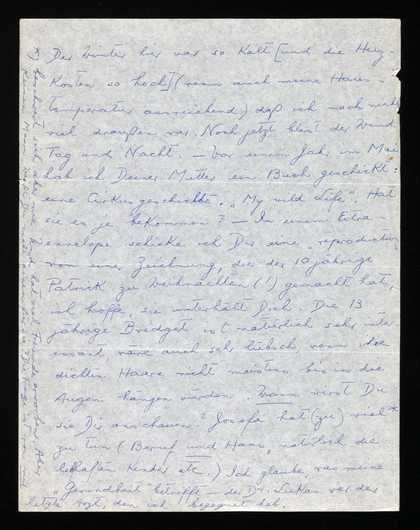 Der Winter hier war so kalt [und die Heiz-
kosten so hoch] (wenn auch meine Haus-
temperatur ausreichend) daß ich noch nicht
viel draußen war. Noch jetzt bläst der Wind
Tag und Nacht. – Vor einem Jahr im Mai
hab ich Deiner Mutter ein Buch geschickt:
eine Cirkusgeschichte, "My wild Life". Hat
sie es je bekommen? – In einem Extra-
envelope schicke ich Dir eine "reproduction"
von einer Zeichnung, die der 10 jährige
Patrick zu Weihnachten (!) gemacht hat,
ich hoffe, sie unterhält Dich. Die 13
jährige Bridget ist natürlich sehr inte-
ressant, wäre auch sehr hübsch, wenn die
dichten Haare nicht meistens bis in die
Augen hängen würden. Wann wirst Du
sie Dir anschauen? Josefa hat (zu) viel
zu tun (Beruf und Haus, natürlich die
lebhaften Kinder etc) Ich glaube, was meine
"Gesundheit" betrifft – der Dr. war der
letzte Arzt, den ich begegnet bin.